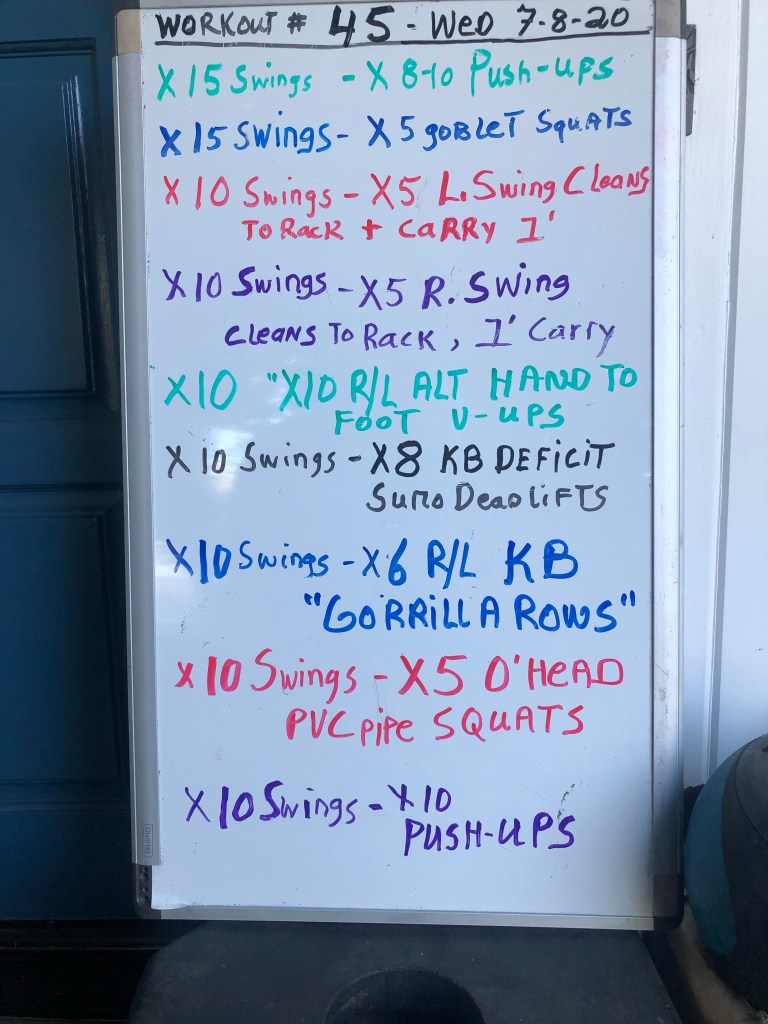 WORKOUT # 45 - WED 7-8-20
X 15 Swings - X 8-10 Push-ups
X 15 Swings - X 5 GOBLET SQUATS
X 10 Swings - X5 L. Swing Cleans
TO RACK + CARRY 1'
X10 Swings - X5 R. Swing
CLEANS TO RACK, 1' Carry
X10 "X10 R/L ALT HAND TO
FOOT V-UPS
X 10 Swings - X8 KB DEFICIT
SUMO DeadliFTS
X10 Swings - X6 R/L KB
"GORRILLA ROWS"
X 10 Swings - X5 O'HEAD
PVC pipe SQUATS
X 10 Swings - X 10
PUSH-UPS
Quartet